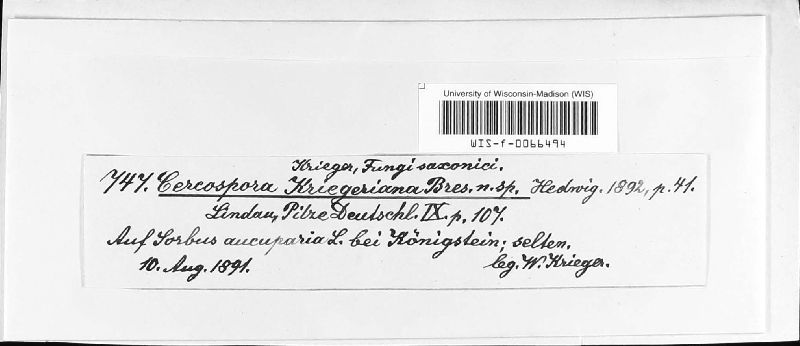 University of Wisconsin-Madison (WIS)
WIS-f-0066494
Krieger, Fungi saxonici.
747. Cercospora Kriegeriana Bres. n. sp. Hedwig. 1892, p. 41.
Lindau, Pilze Deutschl. IX. p. 107.
Auf Sorbus aucuparia L. bei Königstein; selten.
10. Aug. 1891. leg. W. Krieger.